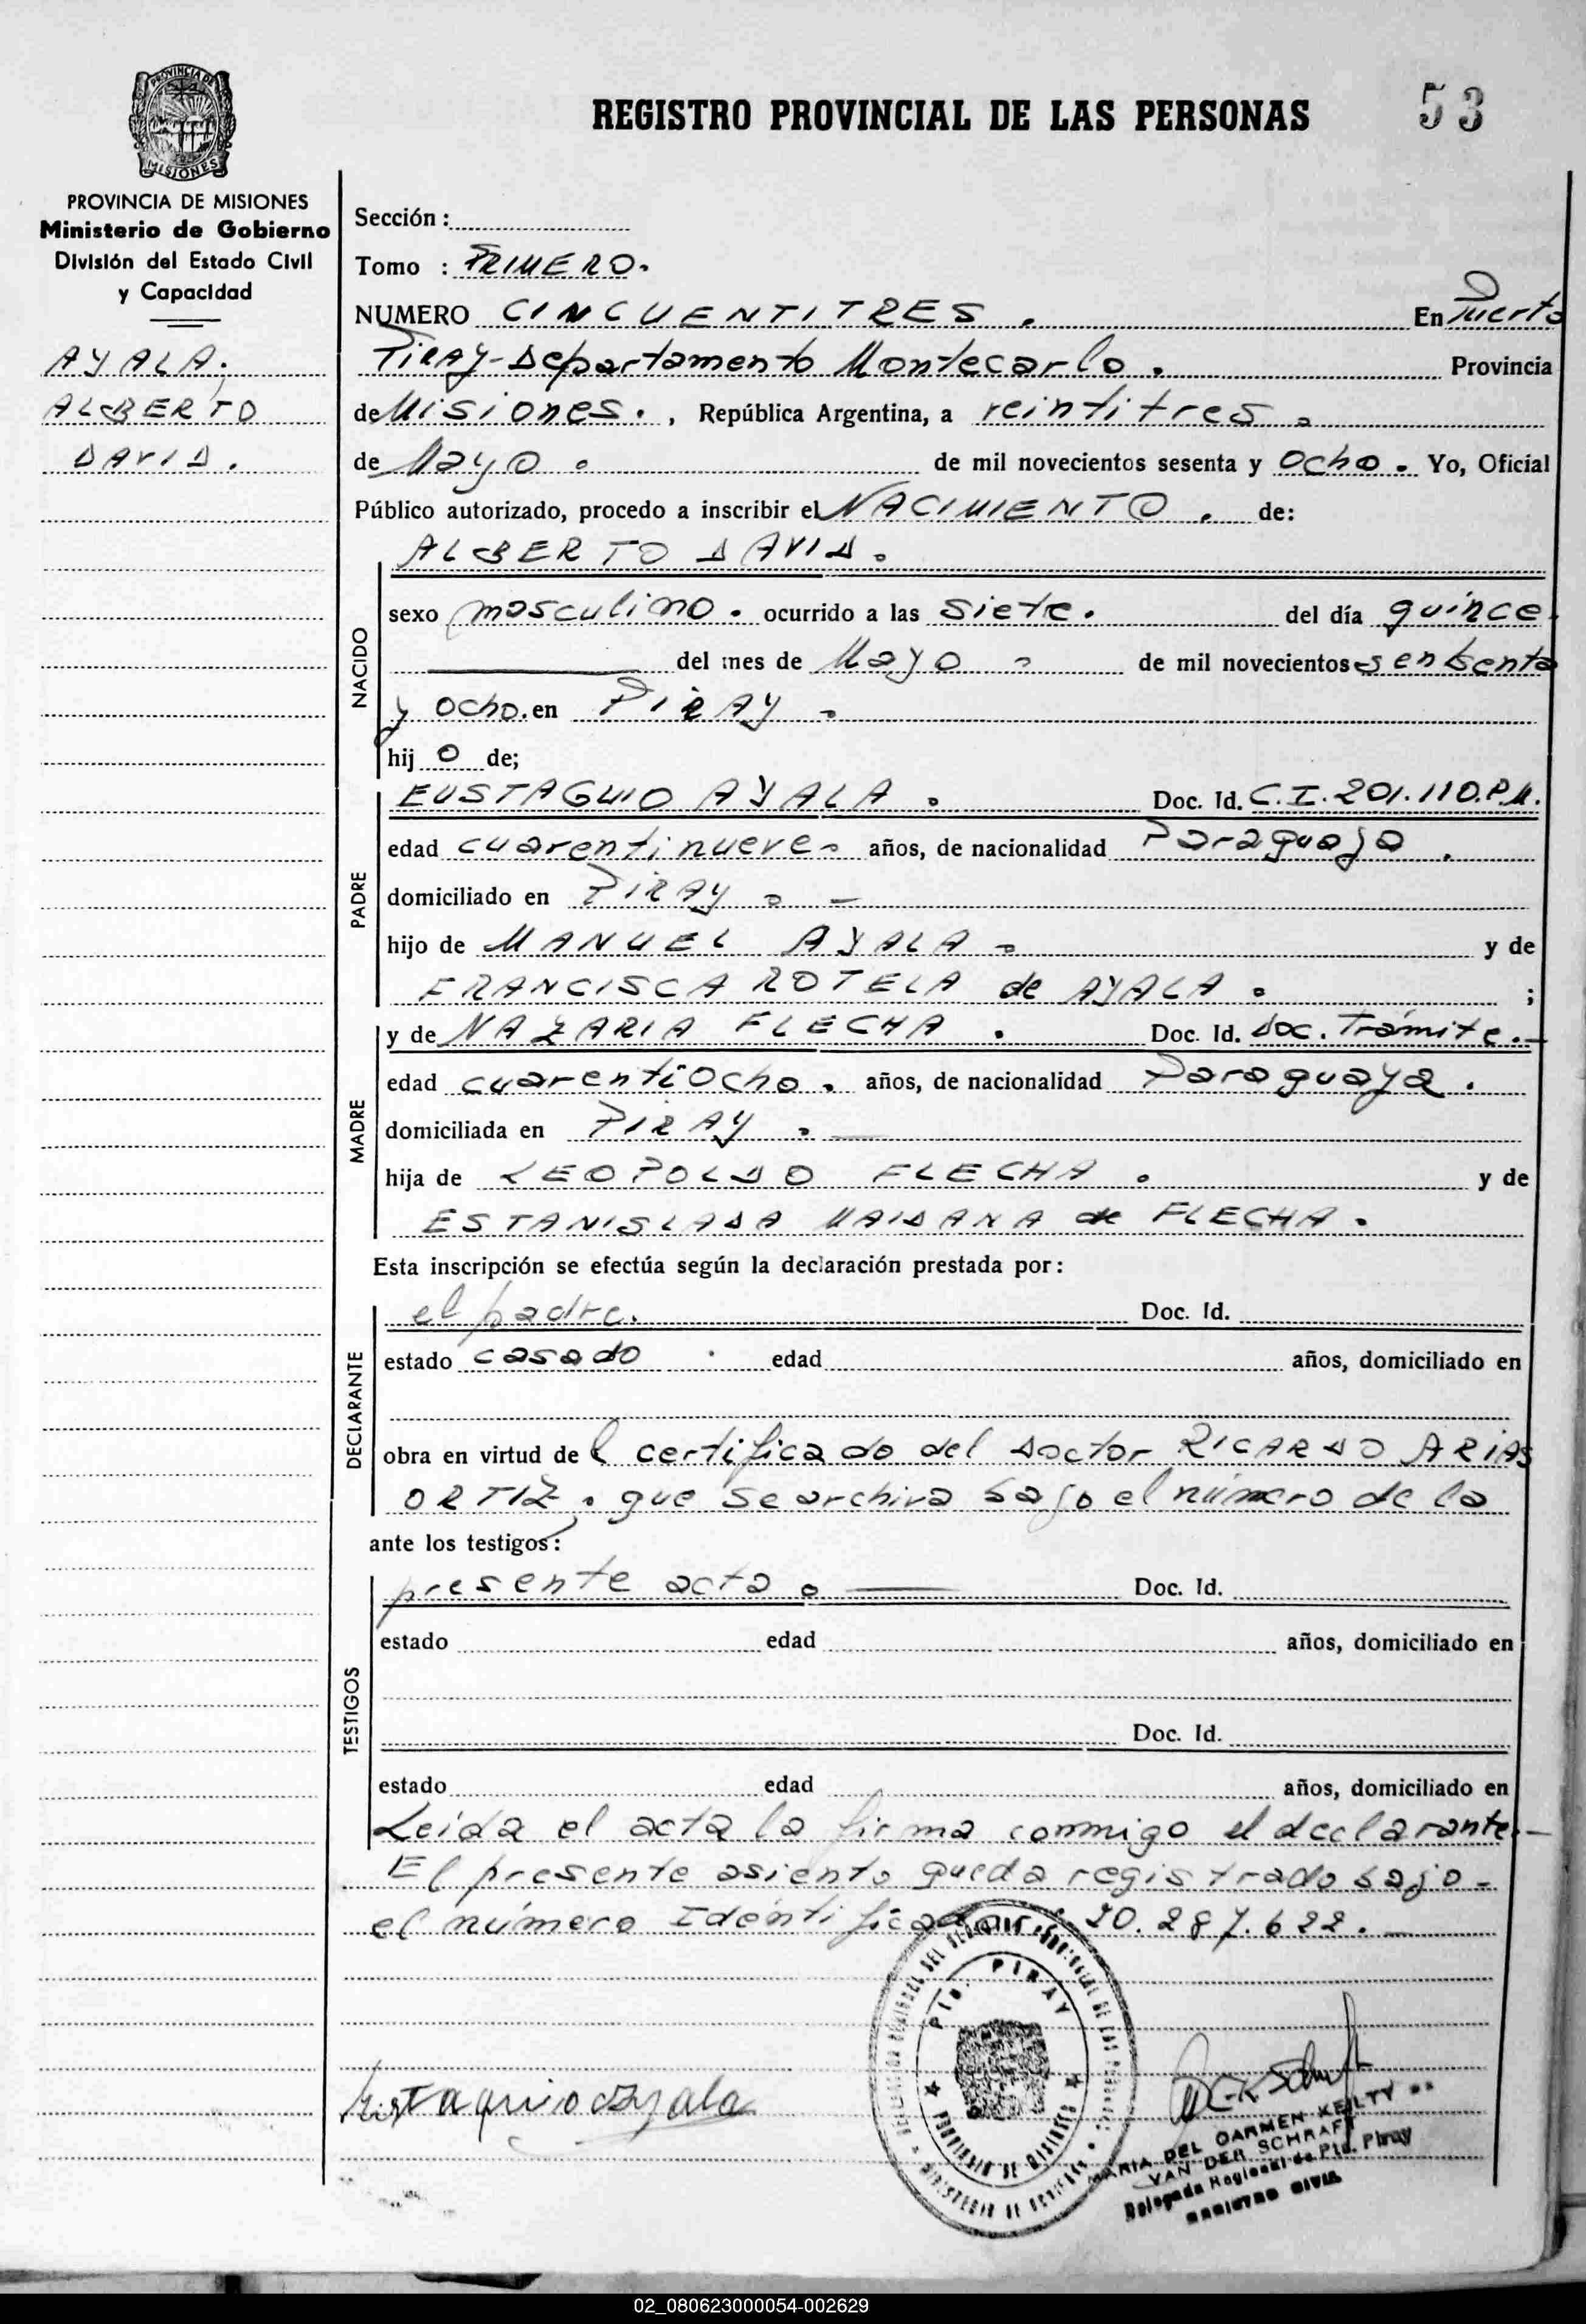 REGISTRO PROVINCIAL DE LAS PERSONAS 53
PROVINCIA DE MISIONES
PROVINCIA DE MISIONES
Ministerio de Gobierno
División del Estado Civil
y Capacidad
AYALA;
ALBERTO
DAVID.
Sección :
Tomo : PRIMERO.
NUMERO CINCUENTITRES . En Puerto
PIRAY-Departamento Montecarlo . Provincia
de Misiones. , República Argentina, a veintitres .
de Mayo . de mil novecientos sesenta y Ocho . Yo, Oficial
Público autorizado, procedo a inscribir el NACIMIENTO . de:
ALBERTO DAVID.
NACIDO
sexo masculino . ocurrido a las siete . del día quince
del mes de Mayo de mil novecientos sensenta
y ocho. en PIRAY .
hij o de;
PADRE
EUSTAQUIO AYALA . Doc. Id. C.I. 201.110.P.M.
edad cuarentinueve . años, de nacionalidad Paraguaya .
domiciliado en PIRAY . -
hijo de MANUEL AYALA . y de
FRANCISCA ROTELA de AYALA . ;
MADRE
y de NAZARIA FLECHA . Doc. Id. Doc. Trámite.-
edad cuarentiocho . años, de nacionalidad Paraguaya .
domiciliada en PIRAY .
hija de LEOPOLDO FLECHA . y de
ESTANISLADA MAIDANA de FLECHA .
Esta inscripción se efectúa según la declaración prestada por:
DECLARANTE
el padre. Doc. Id.
estado casado . edad años, domiciliado en
obra en virtud de l certificado del Doctor RICARDO ARIAS
ORTIZ . que se archiva bajo el número de la
ante los testigos:
TESTIGOS
presente acta . Doc. Id.
estado edad años, domiciliado en
Doc. Id.
estado edad años, domiciliado en
Leida el acta la firma conmigo el declarante.-
El presente asiento queda registrado bajo -
el número Identificador : 20.287.622.
PTO. PIRAY
PROVINCIA DE MISIONES
Eustaquio Ayala
MARIA DEL CARMEN KEILTY DE
VAN DER SCHRAFT
Delegada Regional de Pto. Piray
REGISTRO CIVIL
02_080623000054-002629